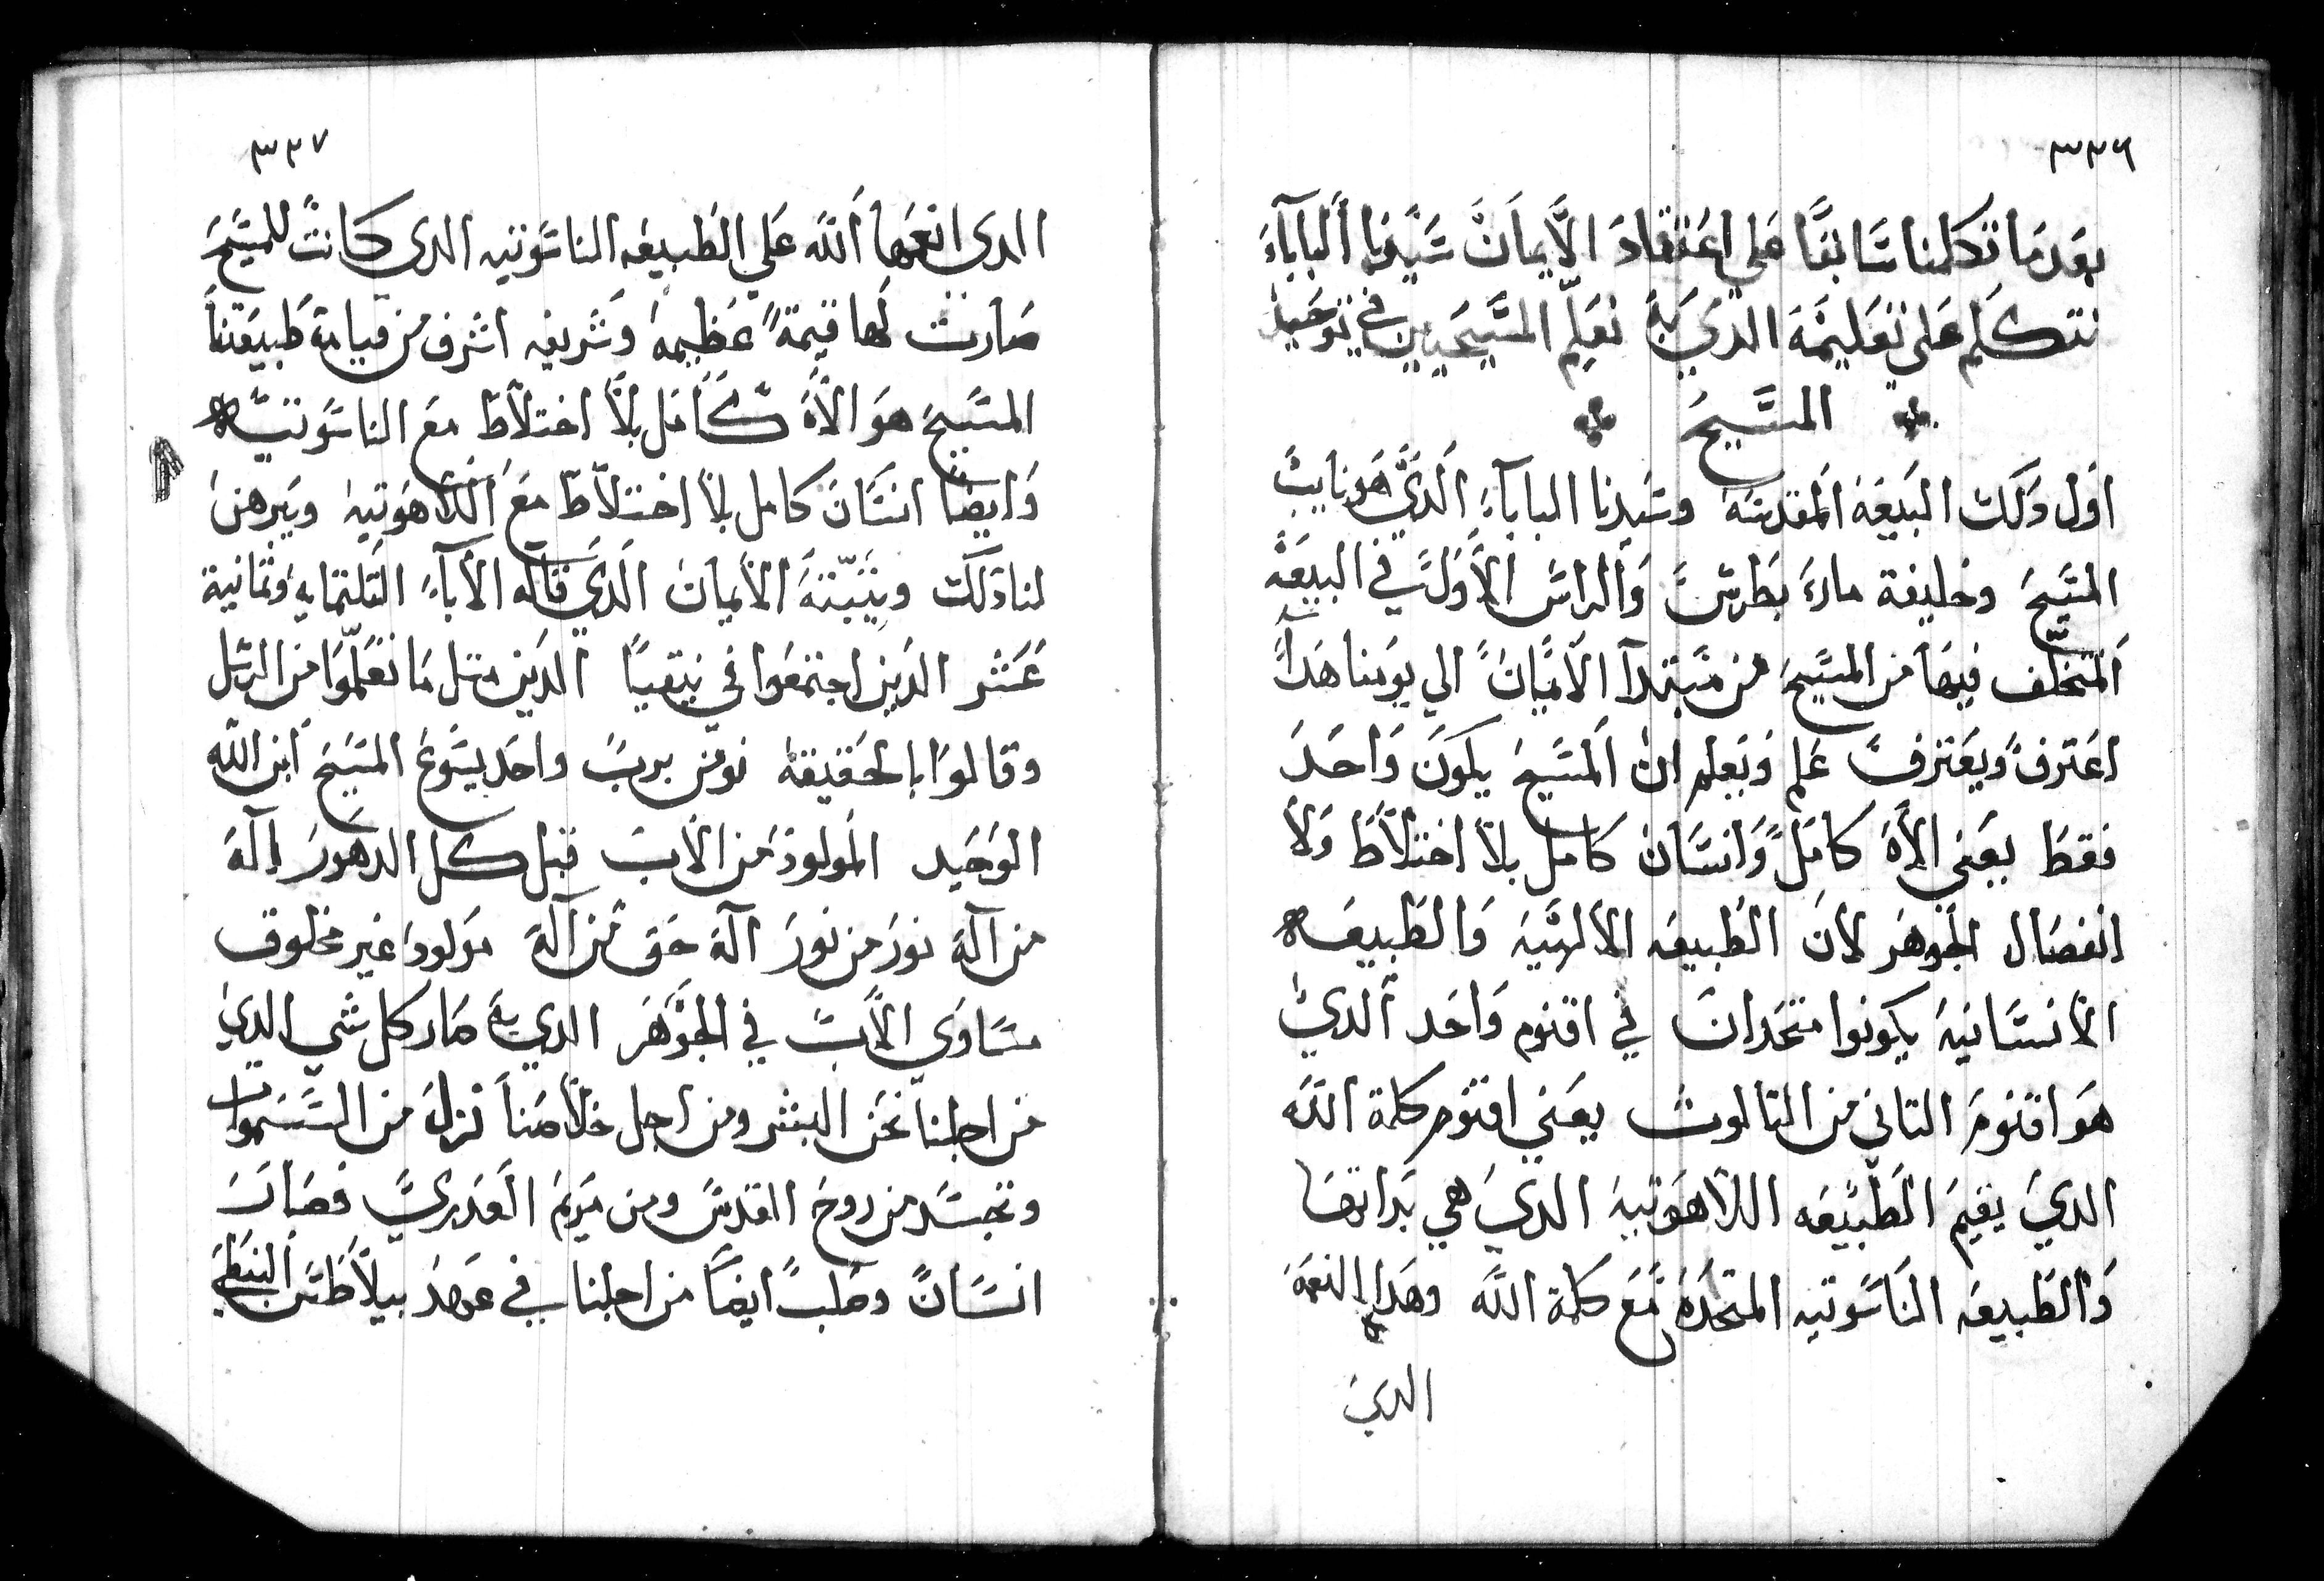 ٣٣٦
بعد ما تكلمنا سَابقًا على اعتقاد الأيمان سَيّدنا البابآء
نتكلم على تعليمه الدي به نعلم المسَيحيين في توحيد
المسَّيحَ
اوَل دَلك البيعَه المقدسَه وسَيدنا البابآء الدَي هَو نايبً
المسَيحَ وخليفة مارَي بَطرسَ وَالراسَ الأَولَ في البيعَه
المتخلف فيهَا من المسَيحَ من مبتدآ الأَيمانَ الي يومنا هَدآ
اعَترفَ ويَعترفَ عَلم وَيَعلم ان المسَيحَ يكونَ وَاحَدَ
فقطَ يعني الأهَ كاملَ وَانسَانَ كامل بلا اختلاَطَ وَلا
انفصَال الجَوهَر لأنَ الطَبيعَه الألهَيَه وَالطَبيعَه
الأنسَانيَه يكونوا متحَدانَ في اقنوم وَاحَد الدي
هَو اقنومَ التاني من التالوتَ يعَني اقنوم كلمة اللَه
الدي يقيمَ الطَبيعَه اللاهَوتيَه الدي هي بدَاتهَا
وَالطَبيعَه الناسَوتيه المتحَدَه مَع كلمة اللَه وهَدا النعمَه
الدي
٣٣٧
الدي انعمَهَا اللَه عَلي الطَبيعَه الناسَوتيه الدي كانتَ للمسَّيحَ
صَارت لَها قيمةً عَظيمهَ وَشَريفَه اشرف من قيامة طَبيعَتنا
المسَيحَ هَو الأهَ كَامَل بلا اختلاَطَ معَ الناسَوتيَه
وَايضًا انسَانَ كامل بلا اختلاَطَ معَ اللاَهَوتيهَ ويَبرهَنَ
لنا دَلكَ ويتَبّتهَ الأيمانَ الدَي قاله الأبآءَ التلتمايه وَتمَانية
عَشر الدَين اجتمعَوا في نيَقيًا الدَين متل مَا تعَلمّوا من الرسَل
وقالوَا بالحَقيقهَ نومَن بربَ واحَد يسَوعَ المسَيحَ ابن اللّه
الوحَيد المَولودَ من الأبَ قبل كل الدهَورَ إلَهَ
من آلَه نورَ من نورَ آلَه حَق من آلَهَ مَولودَ غير مخلوق
مسَاوَي الأَبَ في الجَوهَر الدي به صَار كل شي الدي
من اجلنا نحَن البشر ومن اجل خلاَصَنا نزلَ من السَموات
وتجسَد من روحَ القدسَ ومن مَريَم العَدرَي فصَارَ
انسَانً وصَلبَ ايضًا من اجلنا في عَهدَ بيلاَطَسَ البنطَي